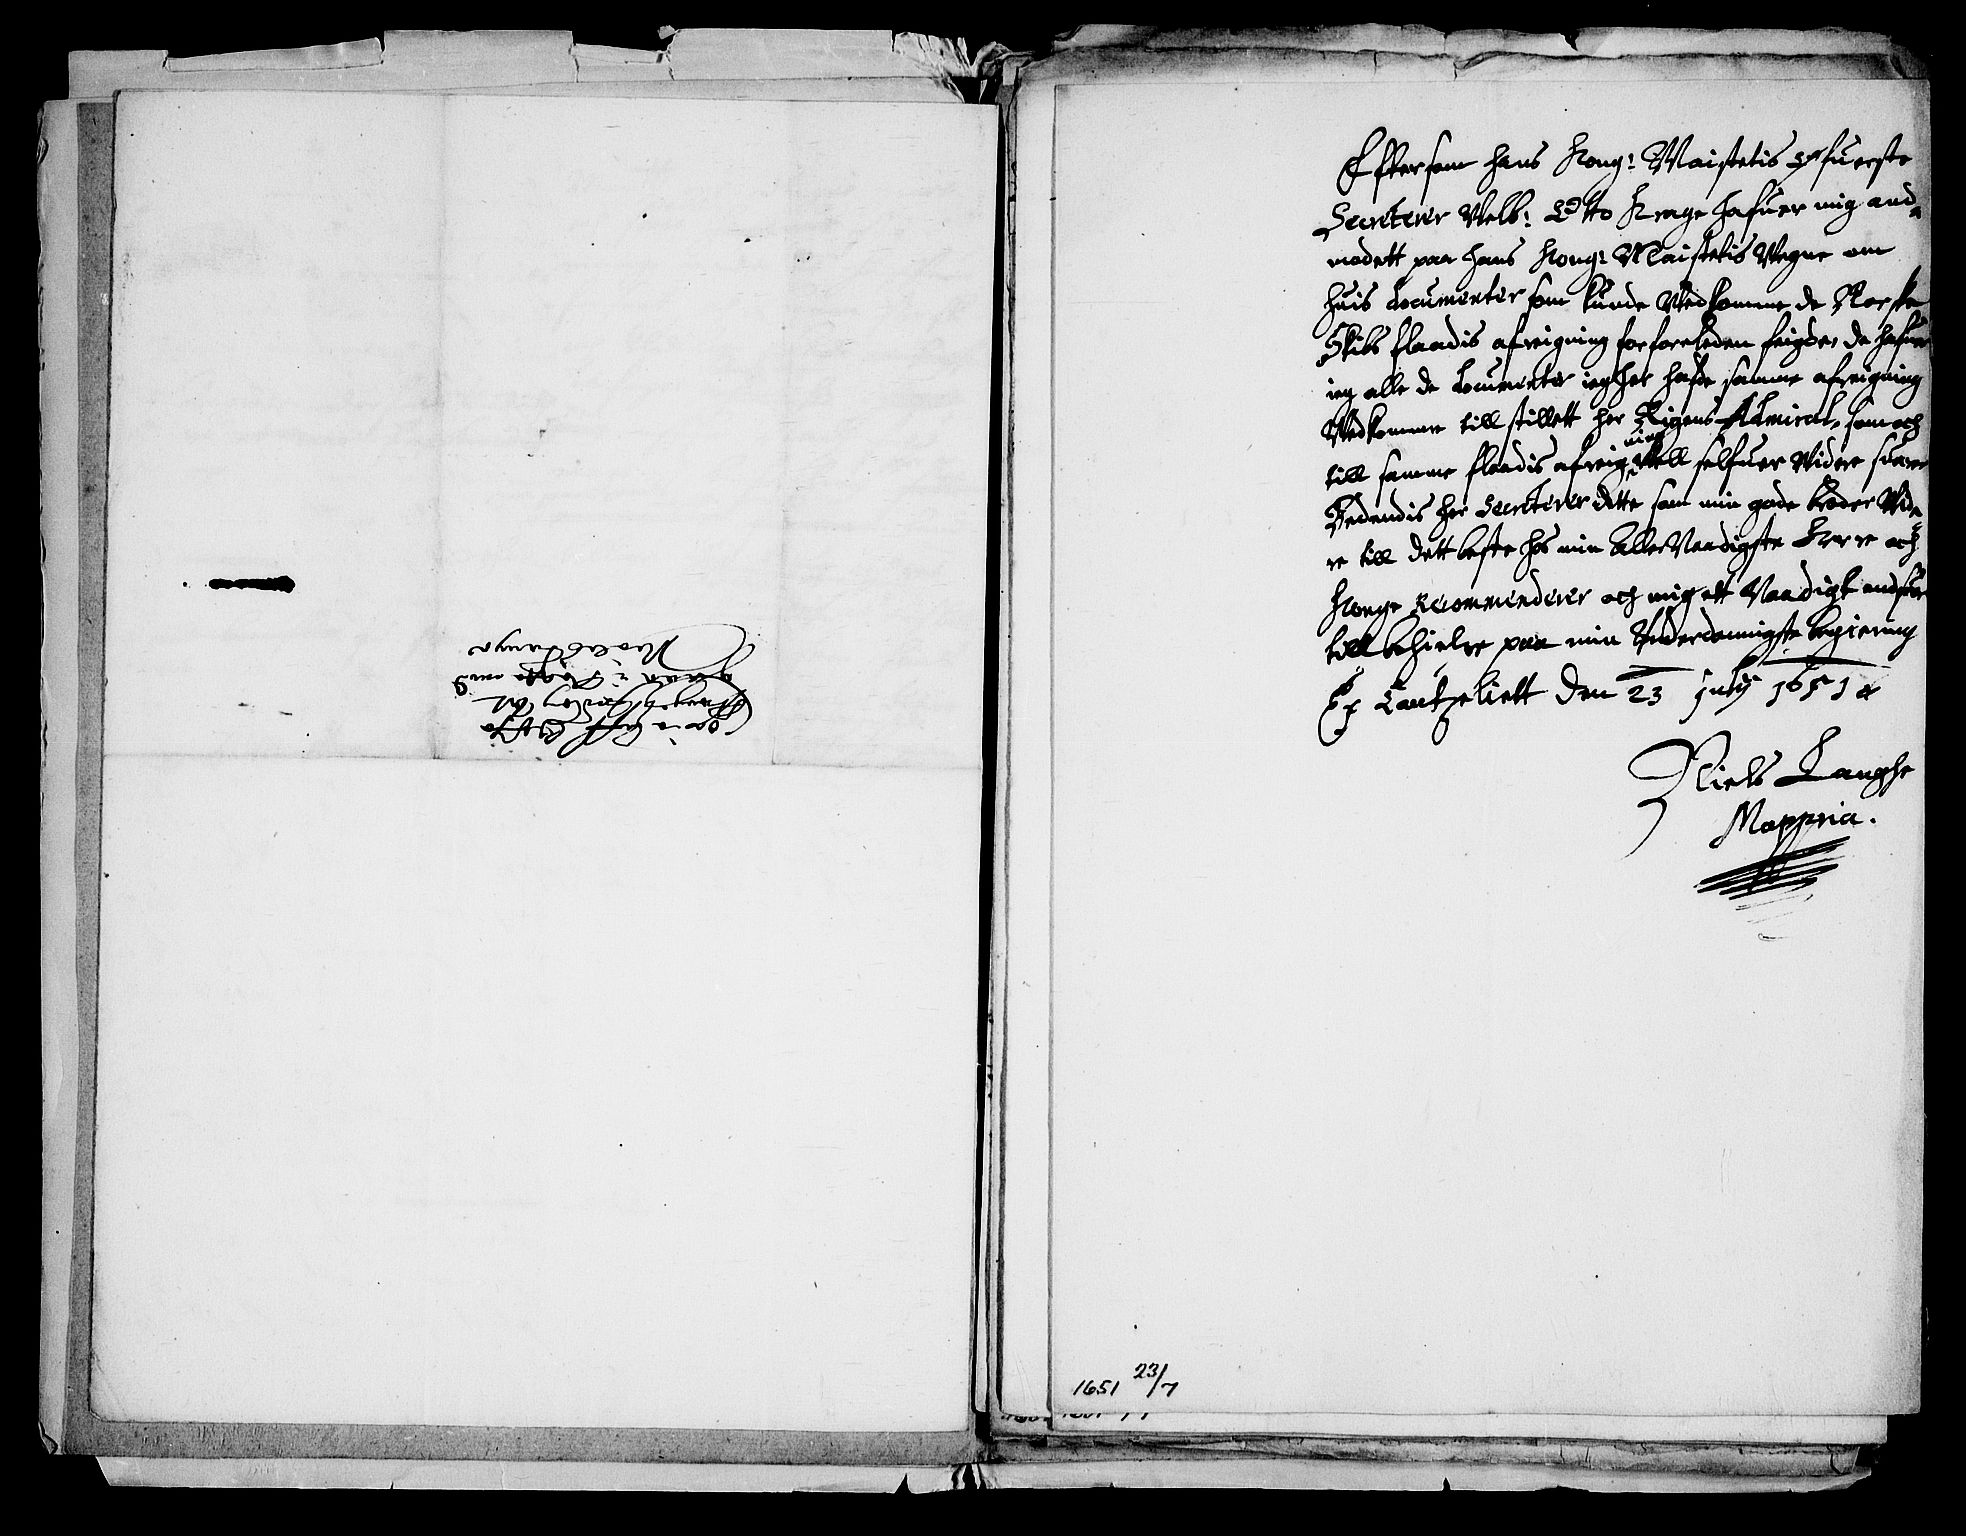 Efftersom hans Kong: Maistetis øffuerste
Secreterer Velb: Otto Krage hafuer mig and„
modett paa hans Kong: Maistetis Vegne om
huis documenter som kunde Vedkomme de Norske
Skibs flaadis afreigning for forleden feigde, da hafuer
ieg alle de documenter ieg her hafde samme afreigning
Vedkomme till stillett her Rigens Admiral, som och
till samme flaadis afreig ning Vell selfuer Videre suare
Bedendis her Secreterer dette som min gode broder Vide„
re till dett beste hos min Aller Naadigste Herre och
Konge Recommenderer och mig ett Naadigt andsuar
till behielpe paa min Underdannigste begiering
Ex Cantzeliett den 23 July 1651
Niels Langhe
Mappria.
1651 23/7